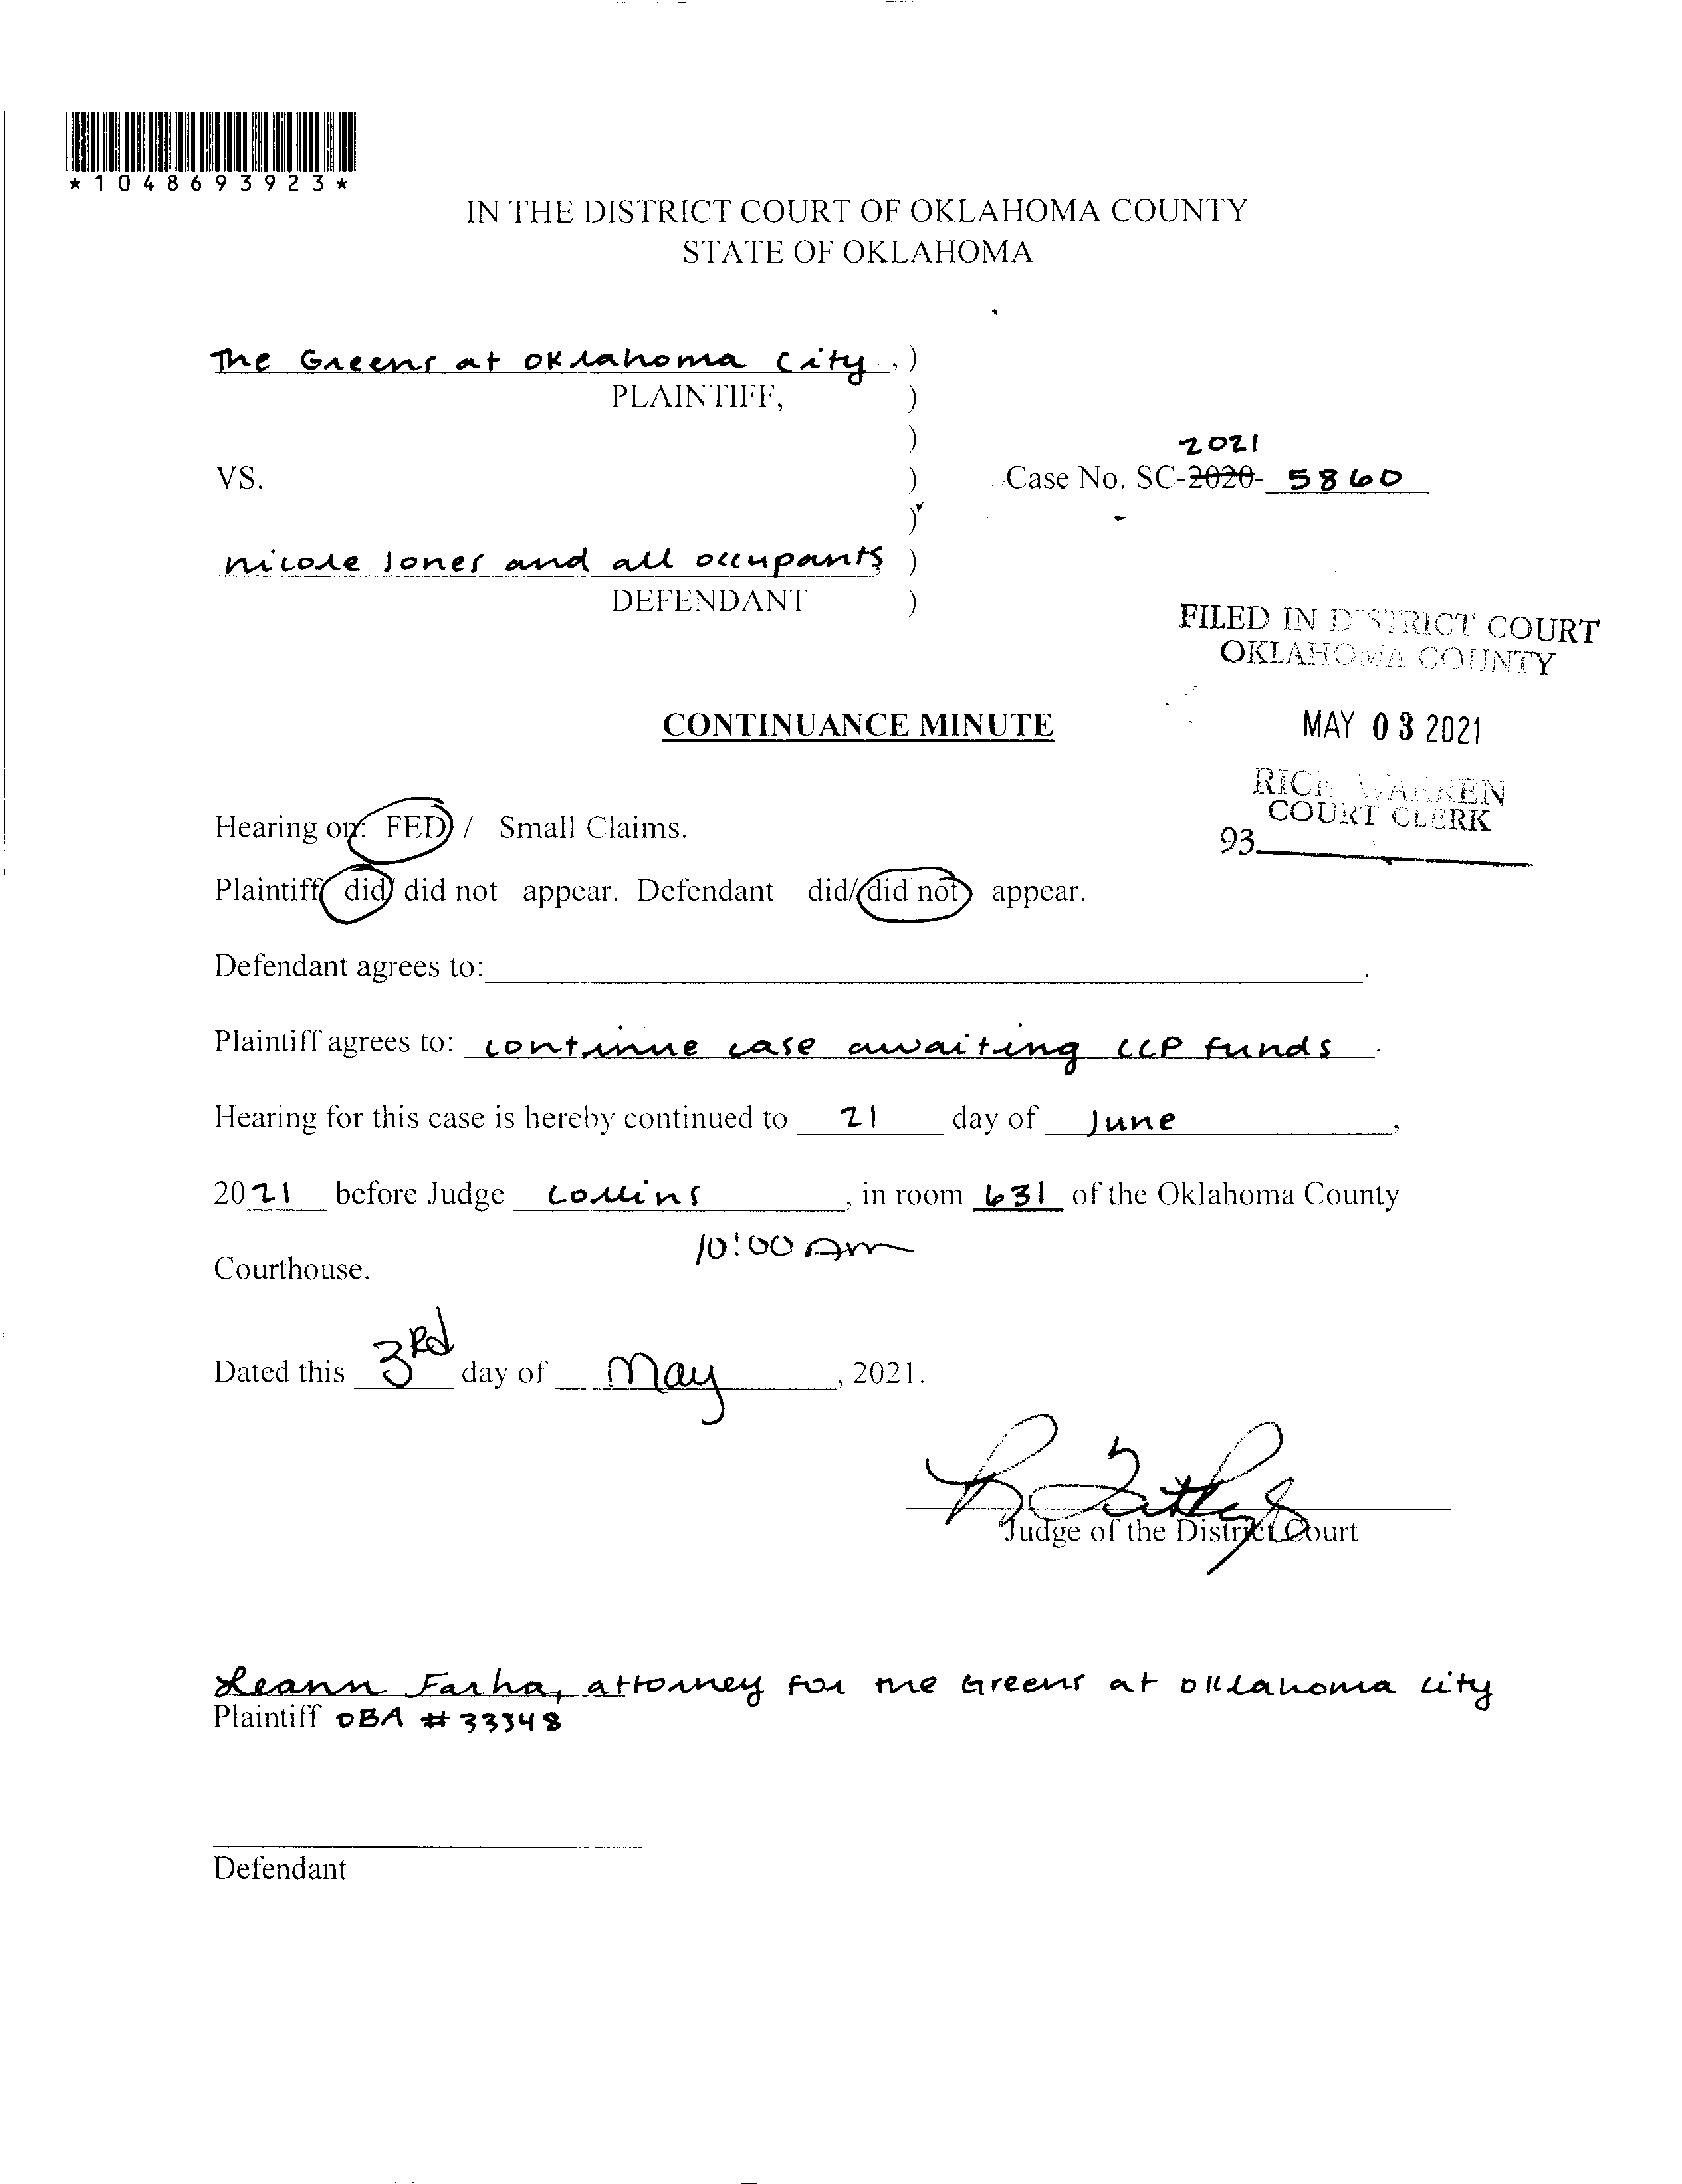 *1048693923*
IN THE DISTRICT COURT OF OKLAHOMA COUNTY
STATE OF OKLAHOMA
The Greens at Oklahoma City, )
PLAINTIFF, )
)
2021
VS. ) Case No. SC-2020- 5860
)
Nicole Jones and all occupants )
DEFENDANT )
FILED IN DISTRICT COURT
OKLAHOMA COUNTY
CONTINUANCE MINUTE
MAY 03 2021
RICK WARREN
COURT CLERK
93
Hearing on: FED / Small Claims.
Plaintiff did/ did not appear. Defendant did/did not appear.
Defendant agrees to: .
Plaintiff agrees to: continue case awaiting CCP funds .
Hearing for this case is hereby continued to 21 day of June ,
2021 before Judge Collins , in room 631 of the Oklahoma County
10:00 Am
Courthouse.
Dated this 3Rd day of May , 2021.
Judge of the District Court
Leann Farha, attorney for the Greens at Oklahoma City
Plaintiff OBA # 33348
Defendant